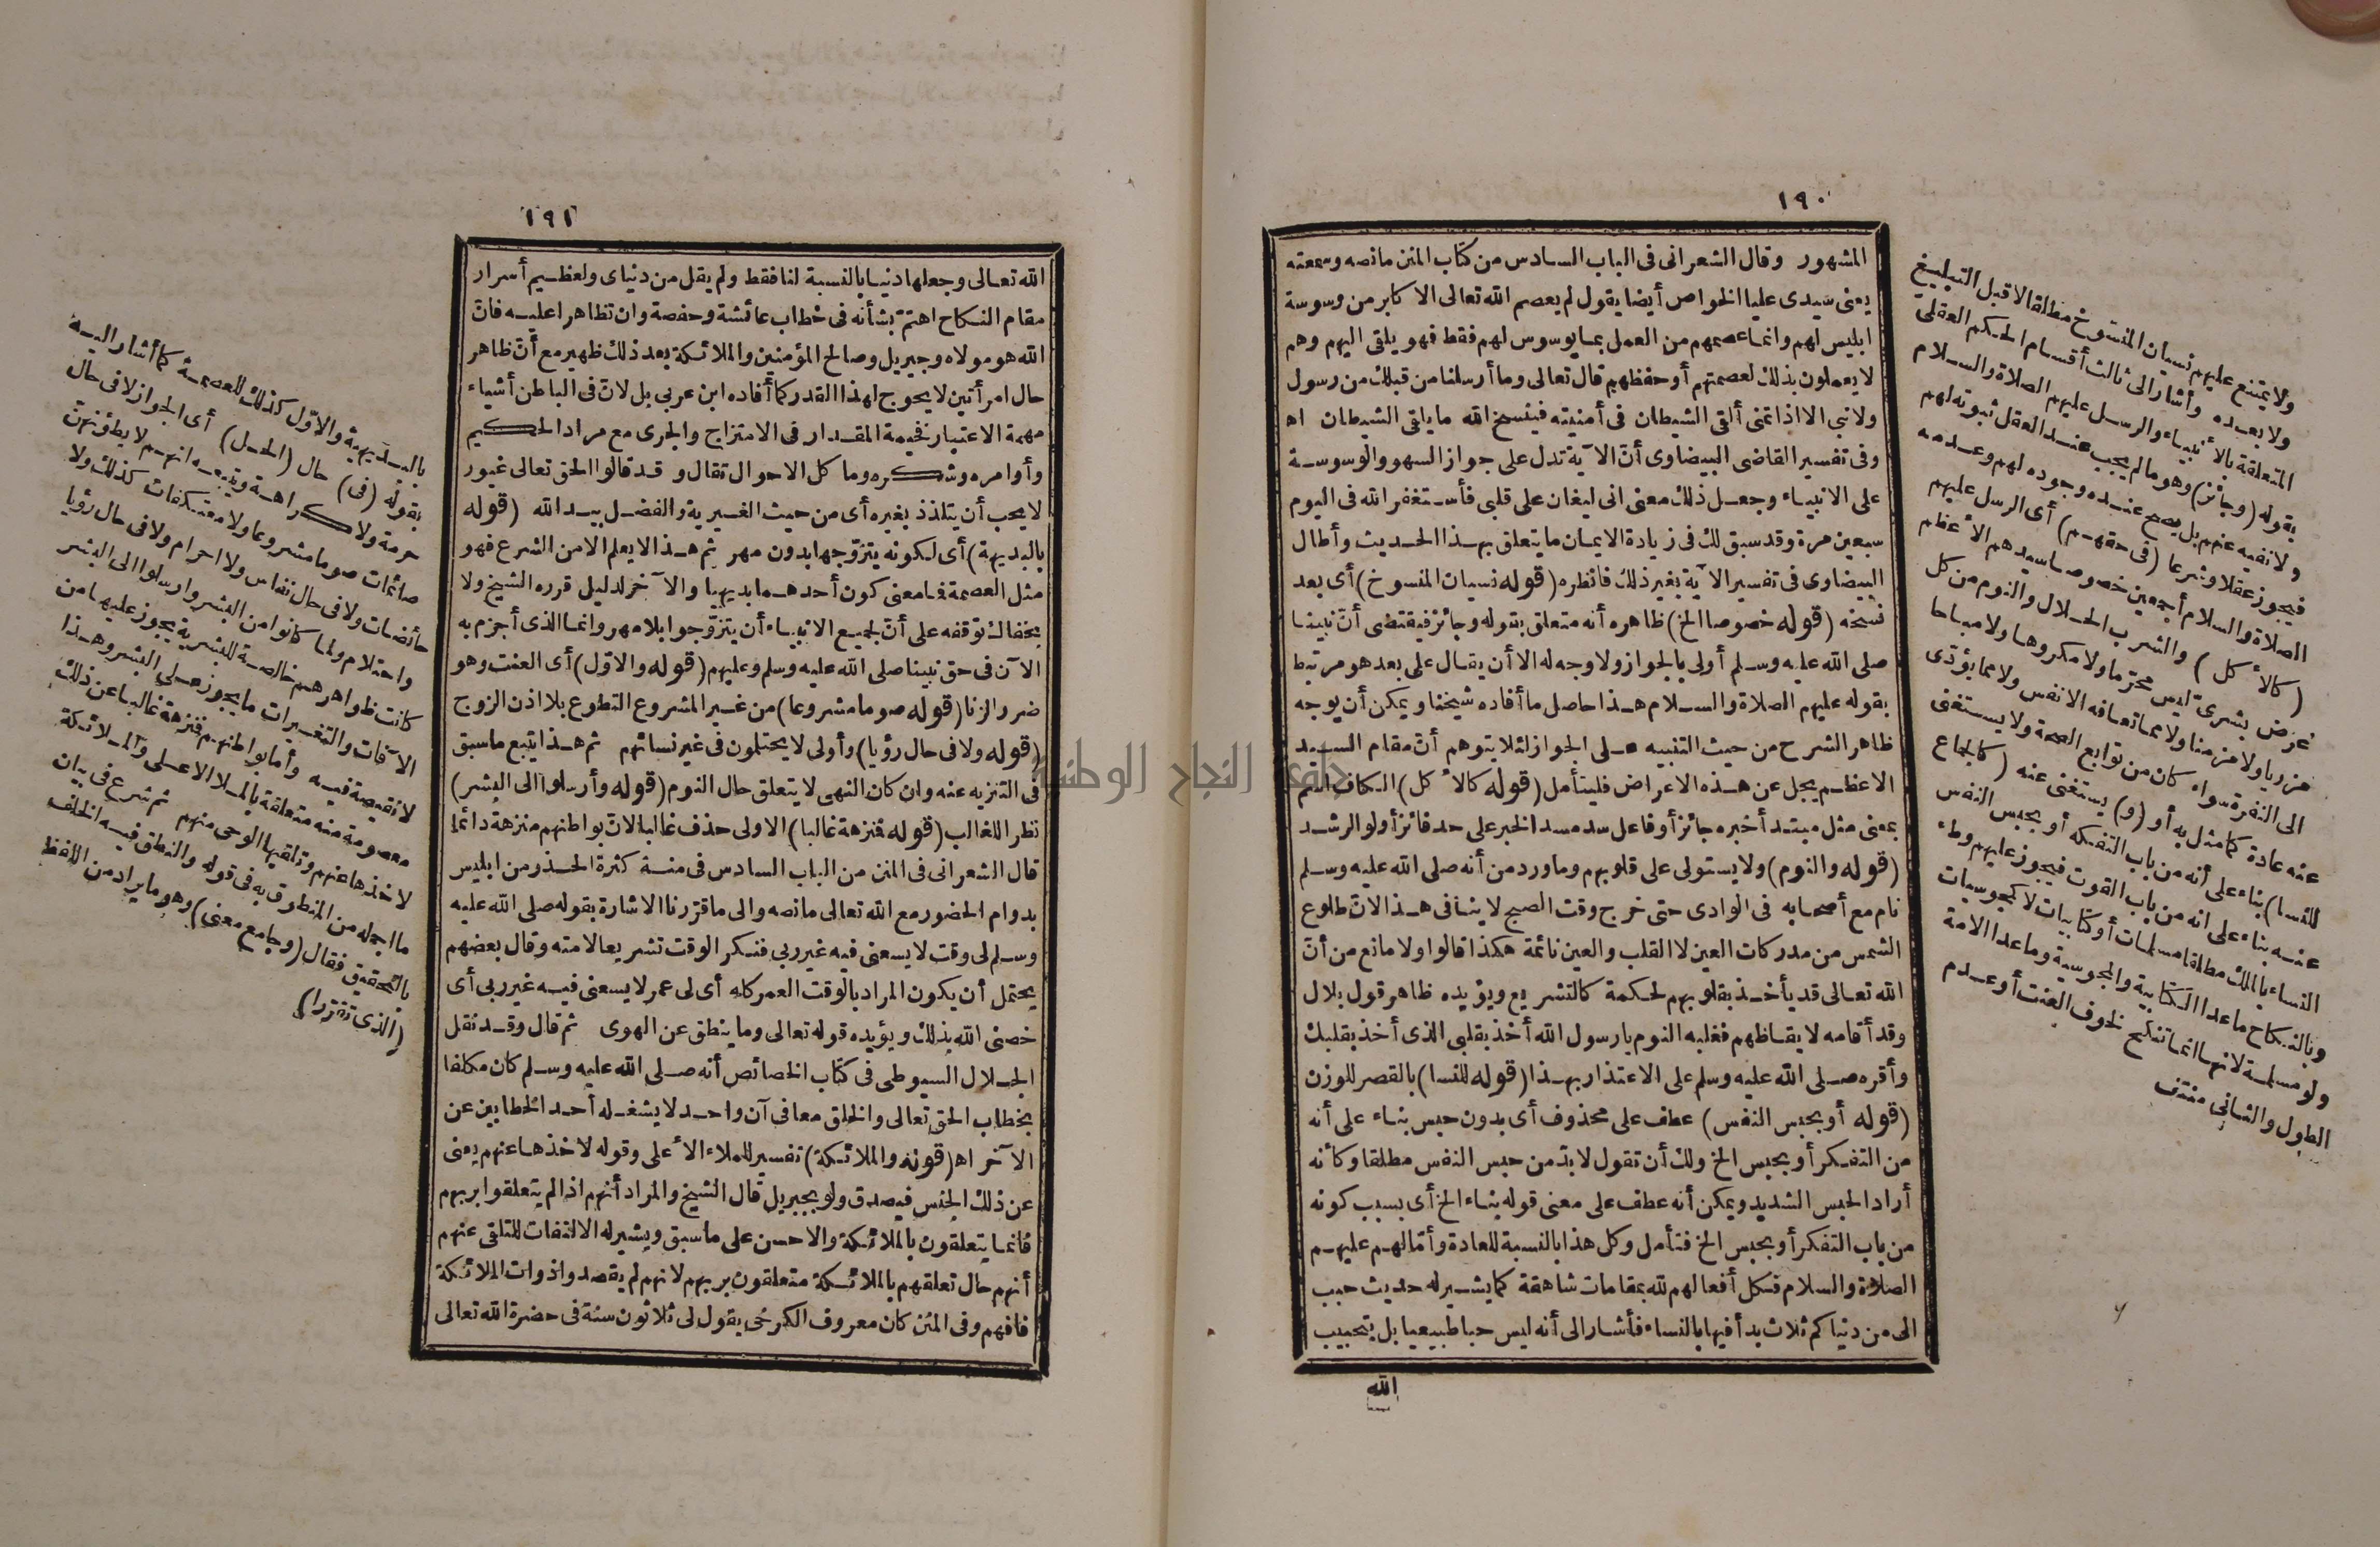 ١٩٠
المشهور وقال الشعرانى فى الباب السادس من كتاب المنن مانصه وسمعته
يعنى سيدى عليا الخواص أيضا يقول لم يعصم الله تعالى الاكابر من وسوسة
ابليس لهم وانما عصمهم من العمل بما يوسوس لهم فقط فهو يلقى اليهم وهم
لا يعملون بذلك لعصمتهم أو حفظهم قال تعالى وما أرسلنا من قبلك من رسول
ولا نبى الا اذا تمنى ألقى الشيطان فى أمنيته فينسخ الله ما يلقى الشيطان اه
وفى تفسير القاضى البيضاوى أنّ الآية تدل على جواز السهو والوسوسة
على الانبياء وجعل ذلك معنى انى ليغان على قلبى فأستغفر الله فى اليوم
سبعين مرة وقد سبق لك فى زيادة الايمان ما يتعلق بهذا الحديث وأطال
البيضاوى فى تفسير الآية بغير ذلك فانظره (قوله نسيان المنسوخ) أى بعد
نسخه (قوله خصوصا الخ) ظاهره أنه متعلق بقوله وجائز فيقتضى أنّ نبينا
صلى الله عليه وسلم أولى بالجواز ولا وجه له الا أن يقال على بعد هو مرتبط
بقوله عليهم الصلاة والسلام هذا حاصل ما أفاده شيخنا ويمكن أن يوجه
ظاهر الشرح من حيث التنبيه على الجواز لئلا يتوهم أنّ مقام السيد
الاعظم يجل عن هذه الاعراض فليتأمل (قوله كالأكل) الكاف اسم
بمعنى مثل مبتدأ خبره جائز أو فاعل سد مسد الخبر على حد فائز أولو الرشد
(قوله والنوم) ولا يستولى على قلوبهم وما ورد من أنه صلى الله عليه وسلم
نام مع أصحابه فى الوادى حتى خرج وقت الصبح لا ينافى هذا لانّ طلوع
الشمس من مدركات العين لا القلب والعين نائمة هكذا قالوا ولا مانع من أنّ
الله تعالى قد يأخذ بقلوبهم لحكمة كالتشريع ويؤيده ظاهر قول بلال
وقد أقامه لايقاظهم فغلبه النوم يا رسول الله أخذ بقلبى الذى أخذ بقلبك
وأقره صلى الله عليه وسلم على الاعتذار بهذا (قوله للنسا) بالقصر للوزن
(قوله أو بحبس النفس) عطف على محذوف أى بدون حبس بناء على أنه
من التفكر أو بحبس الخ ولك أن تقول لابدّ من حبس النفس مطلقا وكأنه
أراد الحبس الشديد ويمكن أنه عطف على معنى قوله بناء الخ أى بسبب كونه
من باب التفكر أو بحبس الخ فتأمل وكل هذا بالنسبة للعادة وأمّا لهم عليهم
الصلاة والسلام فكل أفعالهم لله بمقامات شاهقة كما يشير له حديث حبب
الى من دنياكم ثلاث بدأ فيها بالنساء فأشار الى أنه ليس حبا طبيعيا بل بتحبيب
الله
ولا يمتنع عليهم نسيان المنسوخ مطلقا لا قبل التبليغ
ولا بعده وأشار الى ثالث أقسام الحكم العقلىّ
المتعلقة بالأنبياء والرسل عليهم الصلاة والسلام
بقوله (وجائز) وهو ما لم يجب عند العقل ثبوته لهم
ولا نفيه عنهم بل يصح عنده وجوده لهم وعدمه
فيجوز عقلا وشرعا (فى حقهم) أى الرسل عليهم
الصلاة والسلام أجمعين خصوصا سيدهم الأعظم
(كالأكل) والشرب الحلال والنوم من كل
عرض بشرىّ ليس محرّما ولا مكروها ولا مباحا
مزريا ولا مزمنا ولا مما تعافه الانفس ولا مما يؤدّى
الى النفرة سواء كان من توابع الصحة ولا يستغنى
عنه عادة كما مثل به أو (و) يستغنى عنه (كالجماع
للنسا) بناء على أنه من باب التفكه أو بحبس النفس
عنه بناء على انه من باب القوت فيجوز عليهم وطء
النساء بالملك مطلقا مسلمات أو كتابيات لا مجوسيات
وبالنكاح ما عدا الكتابية والمجوسية وما عدا الامة
ولو مسلمة لانها انما تنكح لخوف العنت أو عدم
الطول والثانى منتف
١٩١
الله تعالى وجعلها دنيا بالنسبة لنا فقط ولم يقل من دنياى ولعظيم أسرار
مقام النكاح اهتمّ بشأنه فى خطاب عائشة وحفصة وان تظاهرا عليه فانّ
الله هو مولاه وجبريل وصالح المؤمنين والملائكة بعد ذلك ظهير مع أنّ ظاهر
حال امرأتين لا يحوج لهذا القدر كما أفاده ابن عربى بل لانّ فى الباطن أشياء
مهمة الاعتبار فخيمة المقدار فى الامتزاج والجرى مع مراد الحكيم
وأوامره وشكره وما كل الاحوال تقال وقد قالوا الحق تعالى غيور
لا يحب أن يتلذذ بغيره أى من حيث الغيرية والفضل بيد الله (قوله
بالبديهة) أى لكونه يتزوّجها بدون مهر ثم هذا لا يعلم الا من الشرع فهو
مثل العصمة فما معنى كون أحدهما بديهيا والآخر لدليل قرره الشيخ ولا
يخفاك توقفه على أنّ لجميع الانبياء أن يتزوّجوا بلا مهر وانما الذى أجزم به
الآن فى حق نبينا صلى الله عليه وسلم وعليهم (قوله والاوّل) أى العنت وهو
ضرر الزنا (قوله صوما مشروعا) من غير المشروع التطوع بلا اذن الزوج
(قوله ولا فى حال رؤيا) وأولى لا يحتلمون فى غير نسائهم ثم هذا يتبع ما سبق
فى التنزيه عنه وان كان النهى لا يتعلق حال النوم (قوله وأرسلوا الى البشر)
نظر اللغالب (قوله فنزهة غالبا) الاولى حذف غالبا لانّ بواطنهم منزهة دائما
قال الشعرانى فى المنن من الباب السادس فى منة كثرة الحذر من ابليس
بدوام الحضور مع الله تعالى مانصه والى ما قرّرنا الاشارة بقوله صلى الله عليه
وسلم لى وقت لا يسعنى فيه غير ربى فنكر الوقت تشريعا لامته وقال بعضهم
يحتمل أن يكون المراد بالوقت العمر كله أى لى عمر لا يسعنى فيه غير ربى أى
خصنى الله بذلك ويؤيده قوله تعالى وما ينطق عن الهوى ثم قال وقد نقل
الجلال السيوطى فى كتاب الخصائص أنه صلى الله عليه وسلم كان مكلفا
بخطاب الحق تعالى والخلق معا فى آن واحد لا يشغله أحد الخطابين عن
الآخر اه (قوله والملائكة) تفسير للملاء الأعلى وقوله لاخذها عنهم يعنى
عن ذلك الجنس فيصدق ولو بجبريل قال الشيخ والمراد أنهم اذا لم يتعلقوا بربهم
فانما يتعلقون بالملائكة والاحسن على ما سبق ويشير له الالتفات للتلقى عنهم
أنهم حال تعلقهم بالملائكة متعلقون بربهم لانهم لم يقصدوا ذوات الملائكة
فافهم وفى المنن كان معروف الكرخى يقول لى ثلاثون سنة فى حضرة الله تعالى
بالبديهية والاوّل كذلك للعصمة كما أشار اليه
بقوله (فى) حال (الحل) أى الجواز لا فى حال
حرمة ولا كراهة وتبعه انهم لا يطؤنهنّ
صائمات صوما مشروعا ولا معتكفات كذلك ولا
حائضات ولا فى حال نفاس ولا احرام ولا فى حال رؤيا
واحتلام ولما كانوا من البشر وارسلوا الى البشر
كانت ظواهرهم خالصة للبشرية يجوز عليها من
الآفات والتغيرات ما يجوز على البشر وهذا
لا نقيصة فيه وأما بواطنهم فنزهة غالبا عن ذلك
معصومة منه متعلقة بالملا الاعلى والملائكة
لاخذها عنهم وتلقيها الوحى منهم ثم شرع فى بيان
ما اجله من المنطوق به فى قوله والنطق فيه الخلف
بالتحقيق فقال (وجامع معنى) وهو ما يراد من اللفظ
(الذى تقرّرا)
جامعة النجاح الوطنية